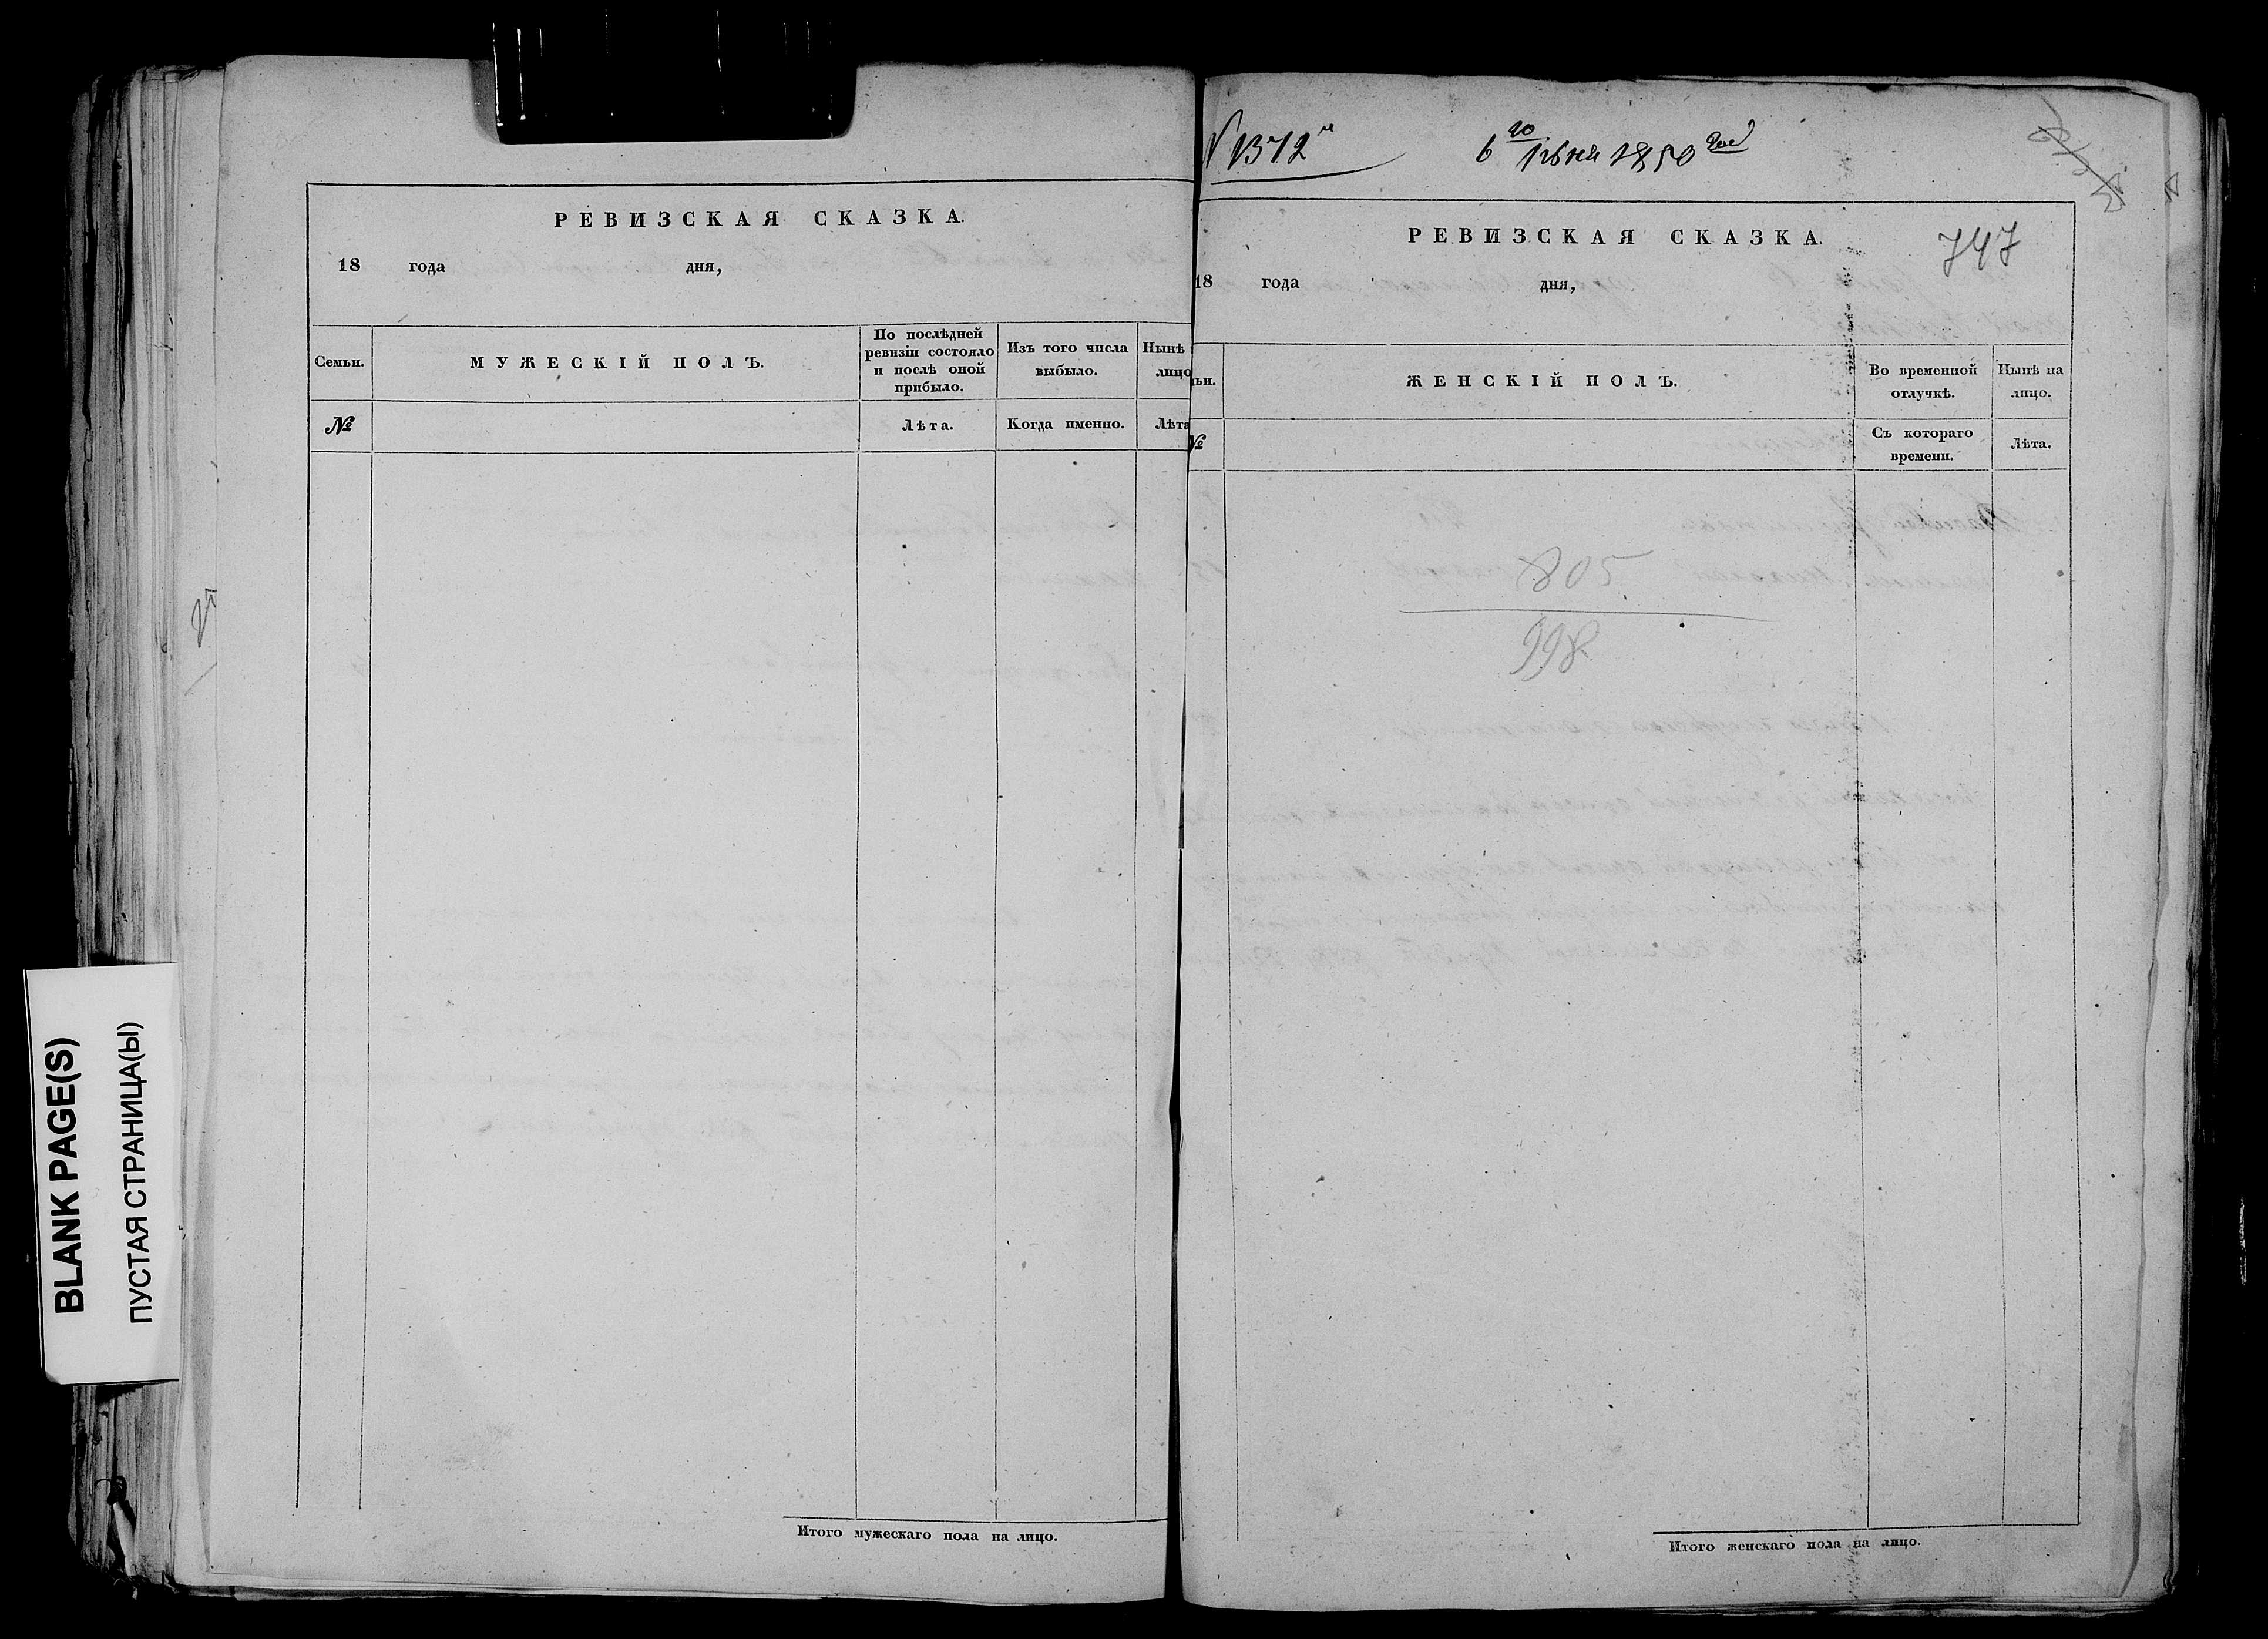 РЕВИЗСКАЯ СКАЗКА.
18 года дня,
Семьи.
МУЖЕСКІЙ ПОЛЪ.
По послѣдней
ревизіи состояло
и послѣ оной
прибыло.
Изъ того числа
выбыло.
Нынѣ
лицо
№
Лѣта.
Когда именно.
Лѣта
Итого мужескаго пола на лицо.
BLANK PAGE(S)
ПУСТАЯ СТРАНИЦА(Ы)
N 1372
6го Іюня 1850 года
747
РЕВИЗСКАЯ СКАЗКА.
18 года дня,
ьи.
ЖЕНСКІЙ ПОЛЪ.
Во временной
отлучкѣ.
Нынѣ на
лицо.
№
Съ котораго
времени.
Лѣта.
805
998
Итого женскаго пола на лицо.